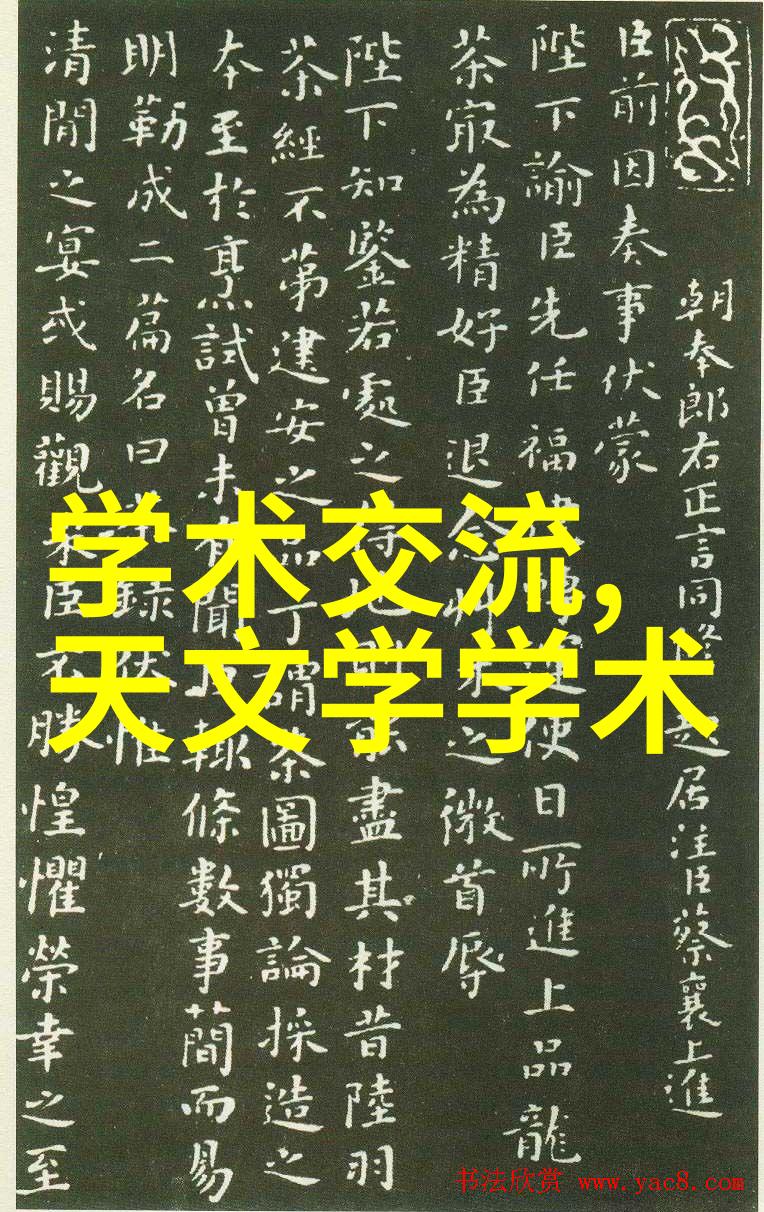 朝奉郎右正言同修起居注臣蔡襄上進
臣前因奏事伏蒙
陛下諭臣先任福建轉運使日所進上品龍
茶冣為精好臣退念艸木之微首辱
陛下知鑒若處之得地則能盡其材昔陸羽
茶經不第建安之品丁謂茶圖獨論採造之
本至於烹試曾未有聞臣輒條數事簡而易
明勒成二篇名曰茶錄伏惟
清閒之宴或賜觀采臣不勝惶懼榮幸之至
学术交流,
天文学学术
书法欣赏 www.yac8.com